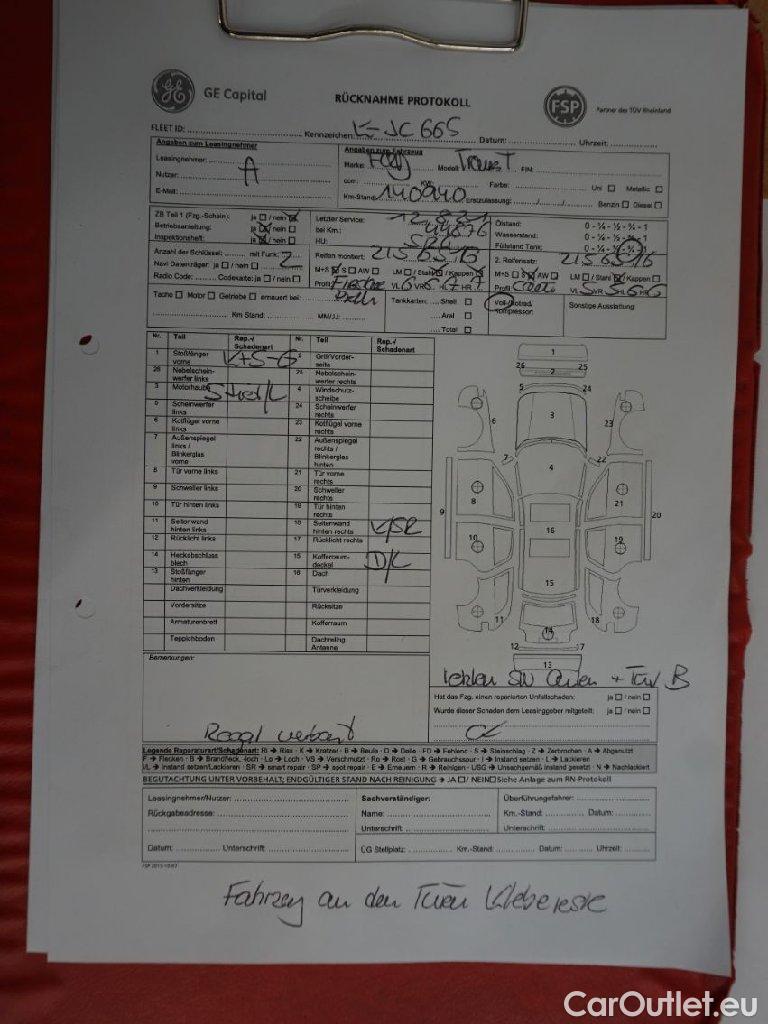 GE Capital
RÜCKNAHME PROTOKOLL
FSP
Partner des TÜV Rheinland
FLEET ID: Kennzeichen: K-JC 665 Datum: Uhrzeit:
Angaben zum Leasingnehmer
Angaben zum Fahrzeug
Leasingnehmer: A
Marke: Ford Modell: Transit FIN:
Nutzer:
Farbe: Uni Metallic
E-Mail:
Km-Stand: 140940 Erstzulassung: Benzin Diesel
ZB Teil 1 (Fzg.-Schein): ja / nein
Letzter Service:
Ölstand: 0 - ¼ - ½ - ¾ - 1
Betriebsanleitung: ja / nein
bei Km.:
Wasserstand: 0 - ¼ - ½ - ¾ - 1
Inspektionsheft: ja / nein
HU:
Füllstand Tank: 0 - ¼ - ½ - ¾ - 1
Anzahl der Schlüssel: mit Funk: 2
Reifen montiert: 215 65 16
2. Reifensatz: 215 65 16
Navi Datenträger: ja / nein
M+S S AW LM / Stahl / Kappen
M+S S AW LM / Stahl / Kappen
Radio Code: Codekarte: ja / nein
Profil VL 6 VR 6 HL 7 HR 7
Profil VL 5 VR 5 HL 6 HR 6
Tacho Motor Getriebe erneuert bei:
Tankkarten: Shell
Sonstige Ausstattung
Km Stand: MM/JJ:
Aral
Kompressor:
Total
Nr. Teil Rep.-/ Schadenart Nr. Teil Rep.-/ Schadenart
1 Stoßfänger vorne K+S-G 2 Grill/Vorderseite
26 Nebelscheinwerfer links 25 Nebelscheinwerfer rechts
3 Motorhaube 4 Windschutzscheibe
5 Scheinwerfer links 24 Scheinwerfer rechts
6 Kotflügel vorne links 23 Kotflügel vorne rechts
7 Außenspiegel links / Blinkerglas vorne 22 Außenspiegel rechts / Blinkerglas hinten
8 Tür vorne links 21 Tür vorne rechts
9 Schweller links 20 Schweller rechts
10 Tür hinten links 19 Tür hinten rechts
11 Seitenwand hinten links 18 Seitenwand hinten rechts K/SR
12 Rücklicht links 17 Rücklicht rechts
14 Heckabschlussblech 15 Kofferraumdeckel D/L
13 Stoßfänger hinten 16 Dach
Dachverkleidung Türverkleidung
Vordersitze Rücksitze
Armaturenbrett Kofferraum
Teppichboden Dachreling Antenne
1
26 2 25
5 24
3
6 23
7 22
4
8 21
9 20
16
10 19
15
11 18
14
12 17
13
Bemerkungen:
Regal verbaut
Hat das Fzg. einen reparierten Unfallschaden: ja / nein
Wurde dieser Schaden dem Leasinggeber mitgeteilt: ja / nein
Legende Reparaturart/Schadenart: RI → Riss - K → Kratzer - B → Beule - D → Delle - FD → Fehlend - S → Steinschlag - Z → Zerbrochen - A → Abgenutzt
F → Flecken - B → Brandfleck, -loch - Lo → Loch - VS → Verschmutzt - Ro → Rost - G → Gebrauchsspur - I → Instand setzen - L → Lackieren
I/L → Instand setzen/Lackieren - SR → smart repair - SP → spot repair - E → Erneuern - R → Reinigen - USG → Unsachgemäß instand gesetzt - N → Nachlackiert
BEGUTACHTUNG UNTER VORBEHALT; ENDGÜLTIGER STAND NACH REINIGUNG → JA / NEIN Siehe Anlage zum RN-Protokoll
Leasingnehmer/Nutzer: Sachverständiger: Überführungsfahrer:
Rückgabeadresse: Name: Km.-Stand: Datum:
Unterschrift Unterschrift:
Datum: Unterschrift: Km.-Stand: Datum: Uhrzeit:
Fahrzeug an den Türen Klebereste
CarOutlet.eu